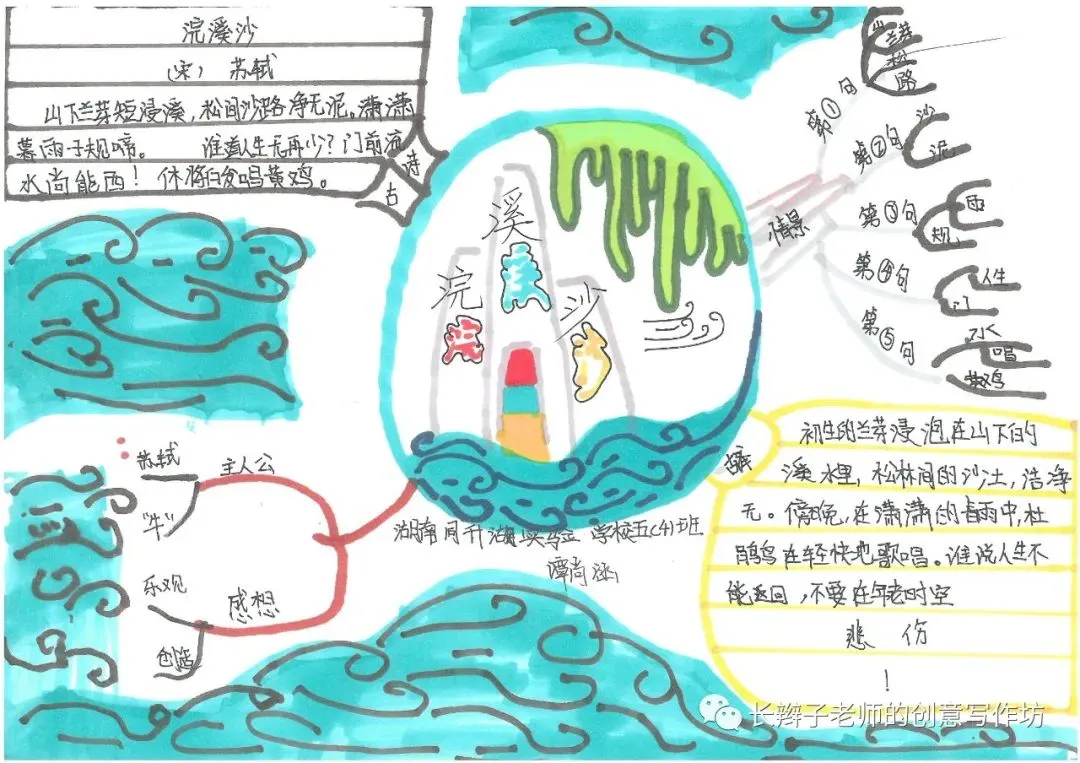 浣溪沙
(宋) 苏轼
山下兰芽短浸溪,松间沙路净无泥。潇潇
暮雨子规啼。 谁道人生无再少?门前流
水尚能西!休将白发唱黄鸡。
古诗
浣
溪
沙
情景
第①句
兰芽
松
路
第②句
沙
泥
第③句
雨
规
第④句
人生
门
第⑤句
水
唱
黄鸡
初生的兰芽浸泡在山下的
溪水里,松林间的沙土,洁净
无。傍晚,在潇潇的春雨中,杜
鹃鸟在轻快地歌唱。谁说人生不
能返回,不要在年老时空
悲伤
!
主人公
苏轼
“牛”
感想
乐观
创造
湖南同升湖实验学校五(4)班
谭
长辫子老师的创意写作坊